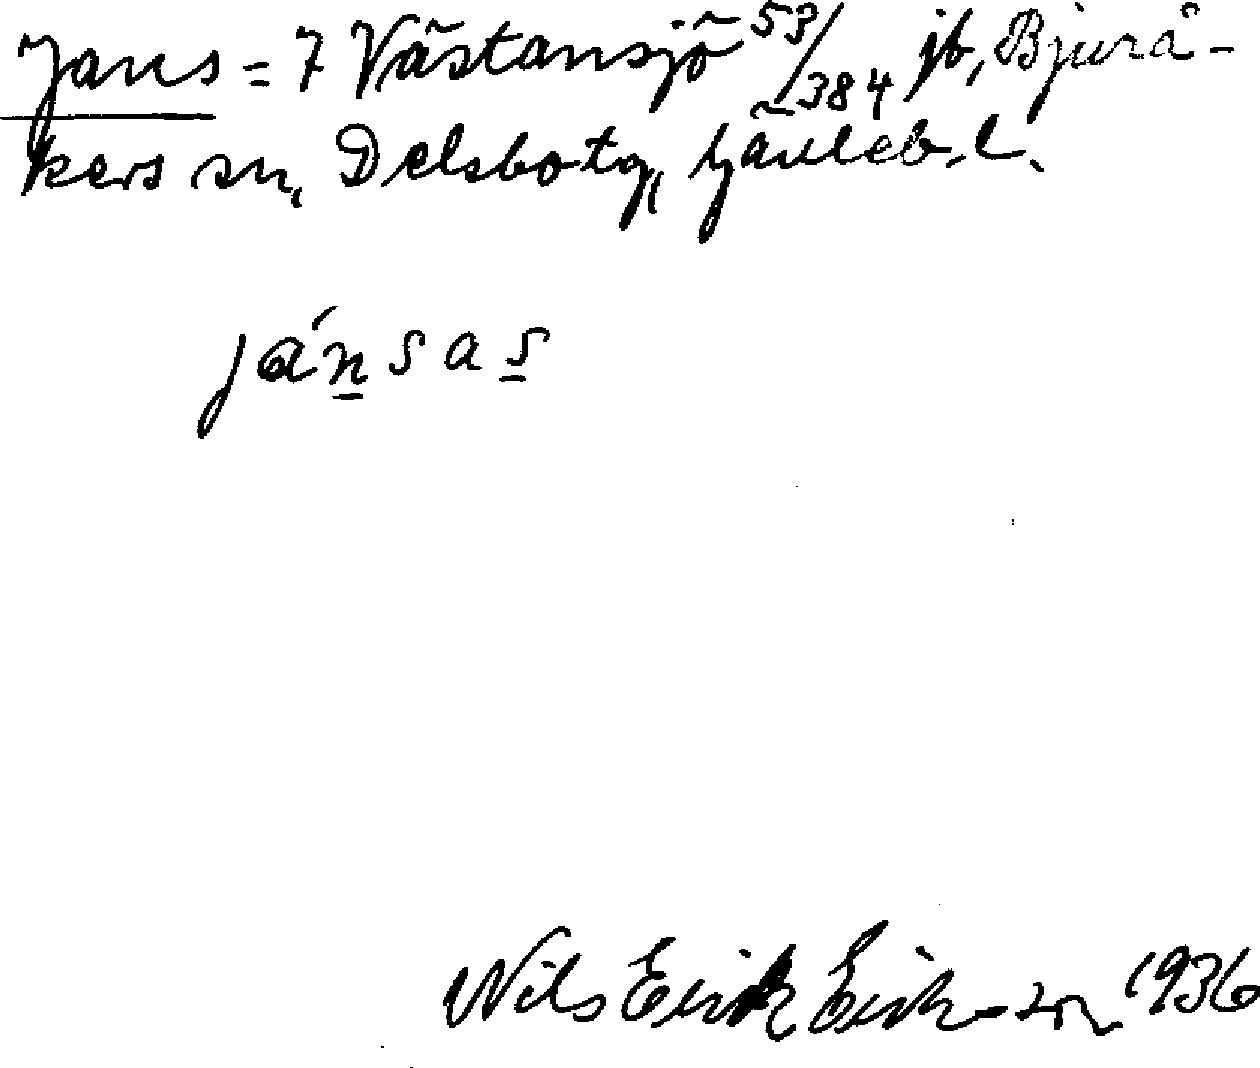 Jans = 7 Västansjö 53/384 jb, Bjurå-
kers sn, Delsbo tg, Gävleb. l.
jánsas
Nils Erik Eriksson 1936